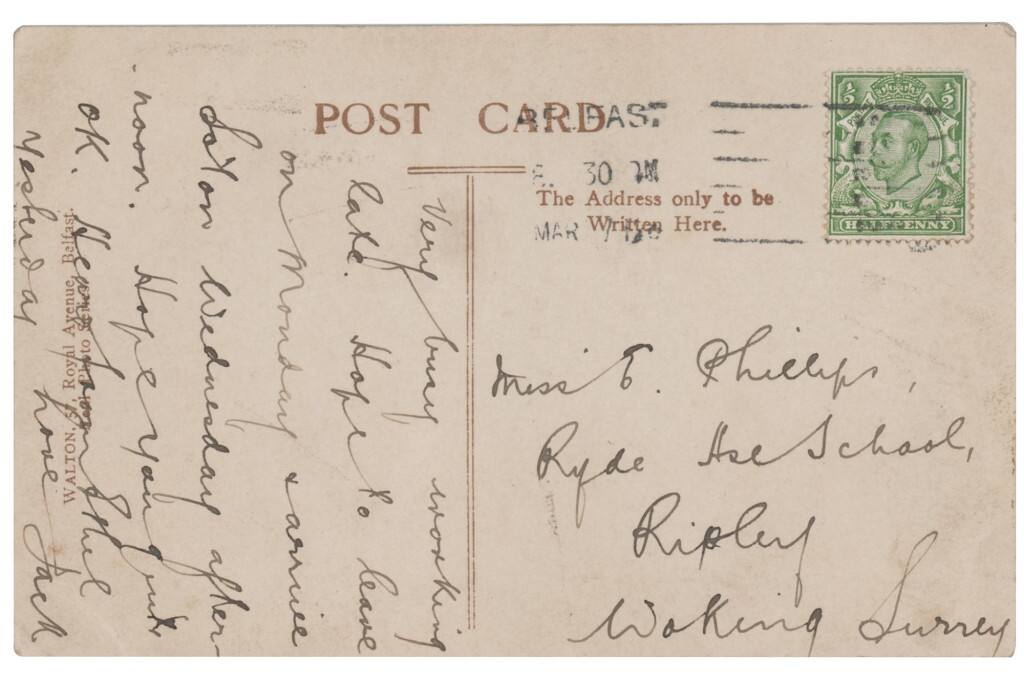 POST CARD
BELFAST
30 PM
MAR
The Address only to be
Written Here.
½ ½
HALFPENNY
Very busy working
late. Hope to leave
on Monday & arrive
Wednesday after-
noon. Hope you
OK. Heard from Ethel
Yesterday love Jack
WALTON, Royal Avenue, Belfast.
Photo Series
Miss E. Phillips,
Ryde Hse School,
Ripley
Woking Surrey